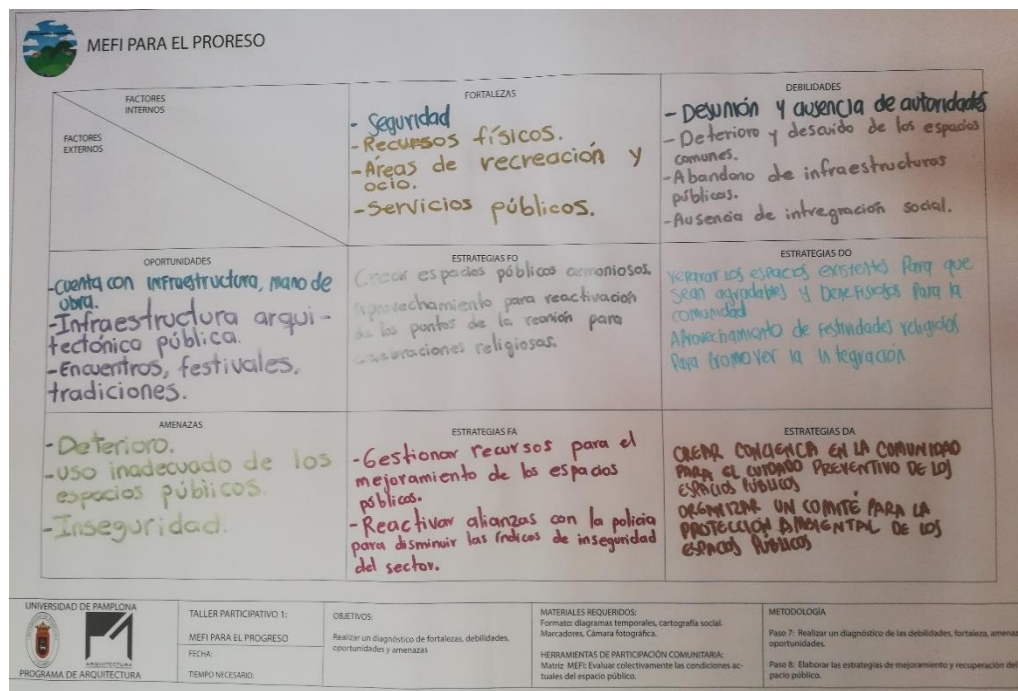 MEFI PARA EL PRORESO
FACTORES
INTERNOS
FACTORES
EXTERNOS
FORTALEZAS
- Seguridad
- Recursos físicos.
- Áreas de recreación y
ocio.
- Servicios públicos.
DEBILIDADES
- Desunión y ausencia de autoridades
- Deterioro y descuido de los espacios
comunes.
- Abandono de infraestructuras
públicas.
- Ausencia de intregración social.
OPORTUNIDADES
- cuenta con infraestructura, mano de
obra.
- Infraestructura arqui-
tectónica pública.
- Encuentros, festivales,
tradiciones.
ESTRATEGIAS FO
Crear espacios públicos armoniosos.
Aprovechamiento para reactivación
de los puntos de la reunión para
celebraciones religiosas.
ESTRATEGIAS DO
reparar los espacios existentes Para que
sean agradables y beneficiosos Para la
comunidad
Aprovechamiento de festividades religiosas
Para Promover la integración
AMENAZAS
- Deterioro.
- uso inadecuado de los
espacios públicos.
- Inseguridad.
ESTRATEGIAS FA
- Gestionar recursos para el
mejoramiento de los espacios
públicos.
- Reactivar alianzas con la policia
para disminuir las índices de inseguridad
del sector.
ESTRATEGIAS DA
CREAR CONCIENCA EN LA COMUNIDAD
PARA EL CUIDADO PREVENTIVO DE LOS
ESPACIOS PUBLICOS
ORGANIZAR UN COMITÉ PARA LA
PROTECCIÓN AMBIENTAL DE LOS
ESPACIOS PUBLICOS
UNIVERSIDAD DE PAMPLONA
ARQUITECTURA
PROGRAMA DE ARQUITECTURA
TALLER PARTICIPATIVO 1:
MEFI PARA EL PROGRESO
FECHA:
TIEMPO NECESARIO:
OBJETIVOS:
Realizar un diagnóstico de fortalezas, debilidades,
oportunidades y amenazas
MATERIALES REQUERIDOS:
Formato: diagramas temporales, cartografía social.
Marcadores, Cámara fotográfica.
HERRAMIENTAS DE PARTICIPACIÓN COMUNITARIA:
Matriz MEFI: Evaluar colectivamente las condiciones ac-
tuales del espacio público.
METODOLOGÍA
Paso 7: Realizar un diagnóstico de las debilidades, fortaleza, amenaz
oportunidades.
Paso 8: Elaborar las estrategias de mejoramiento y recuperación del
pacio público.